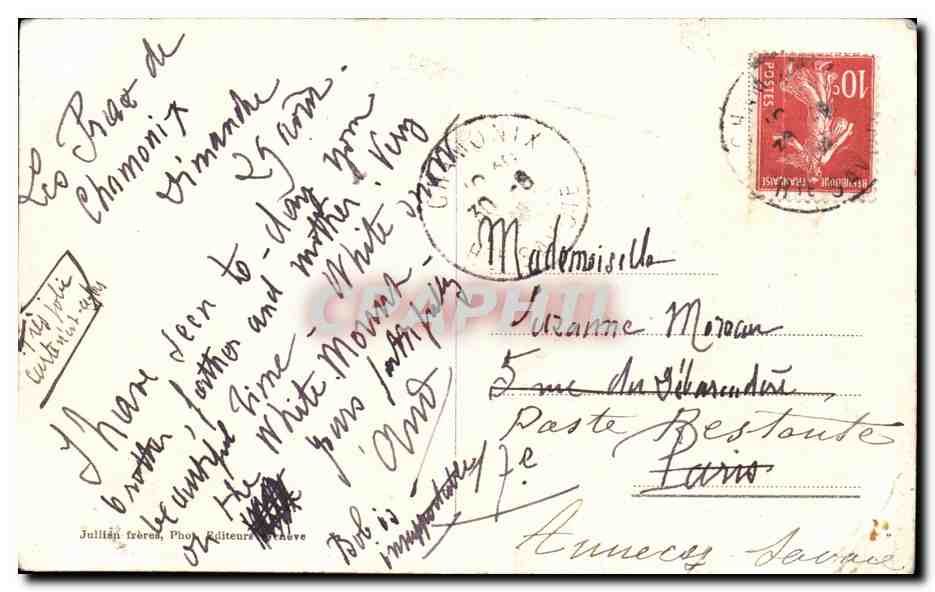 Les Praz-de
Chamonix
Dimanche
29 août.
I have seen to-day your
brother, father and mother. Very
beautiful time. White snow
on the White-Mount.
yours faithfully
Bob is
insupportable
Très jolie
CHAMONIX
30
Hte SAVOIE
POSTES
10c
REPUBLIQUE FRANÇAISE
Mademoiselle
Suzanne Moreau
5 rue du Débarcadère
Poste Restante
Paris
17e
Annecy Savoie
Jullien frères, Phot. Editeurs Genève
CPAPHIL